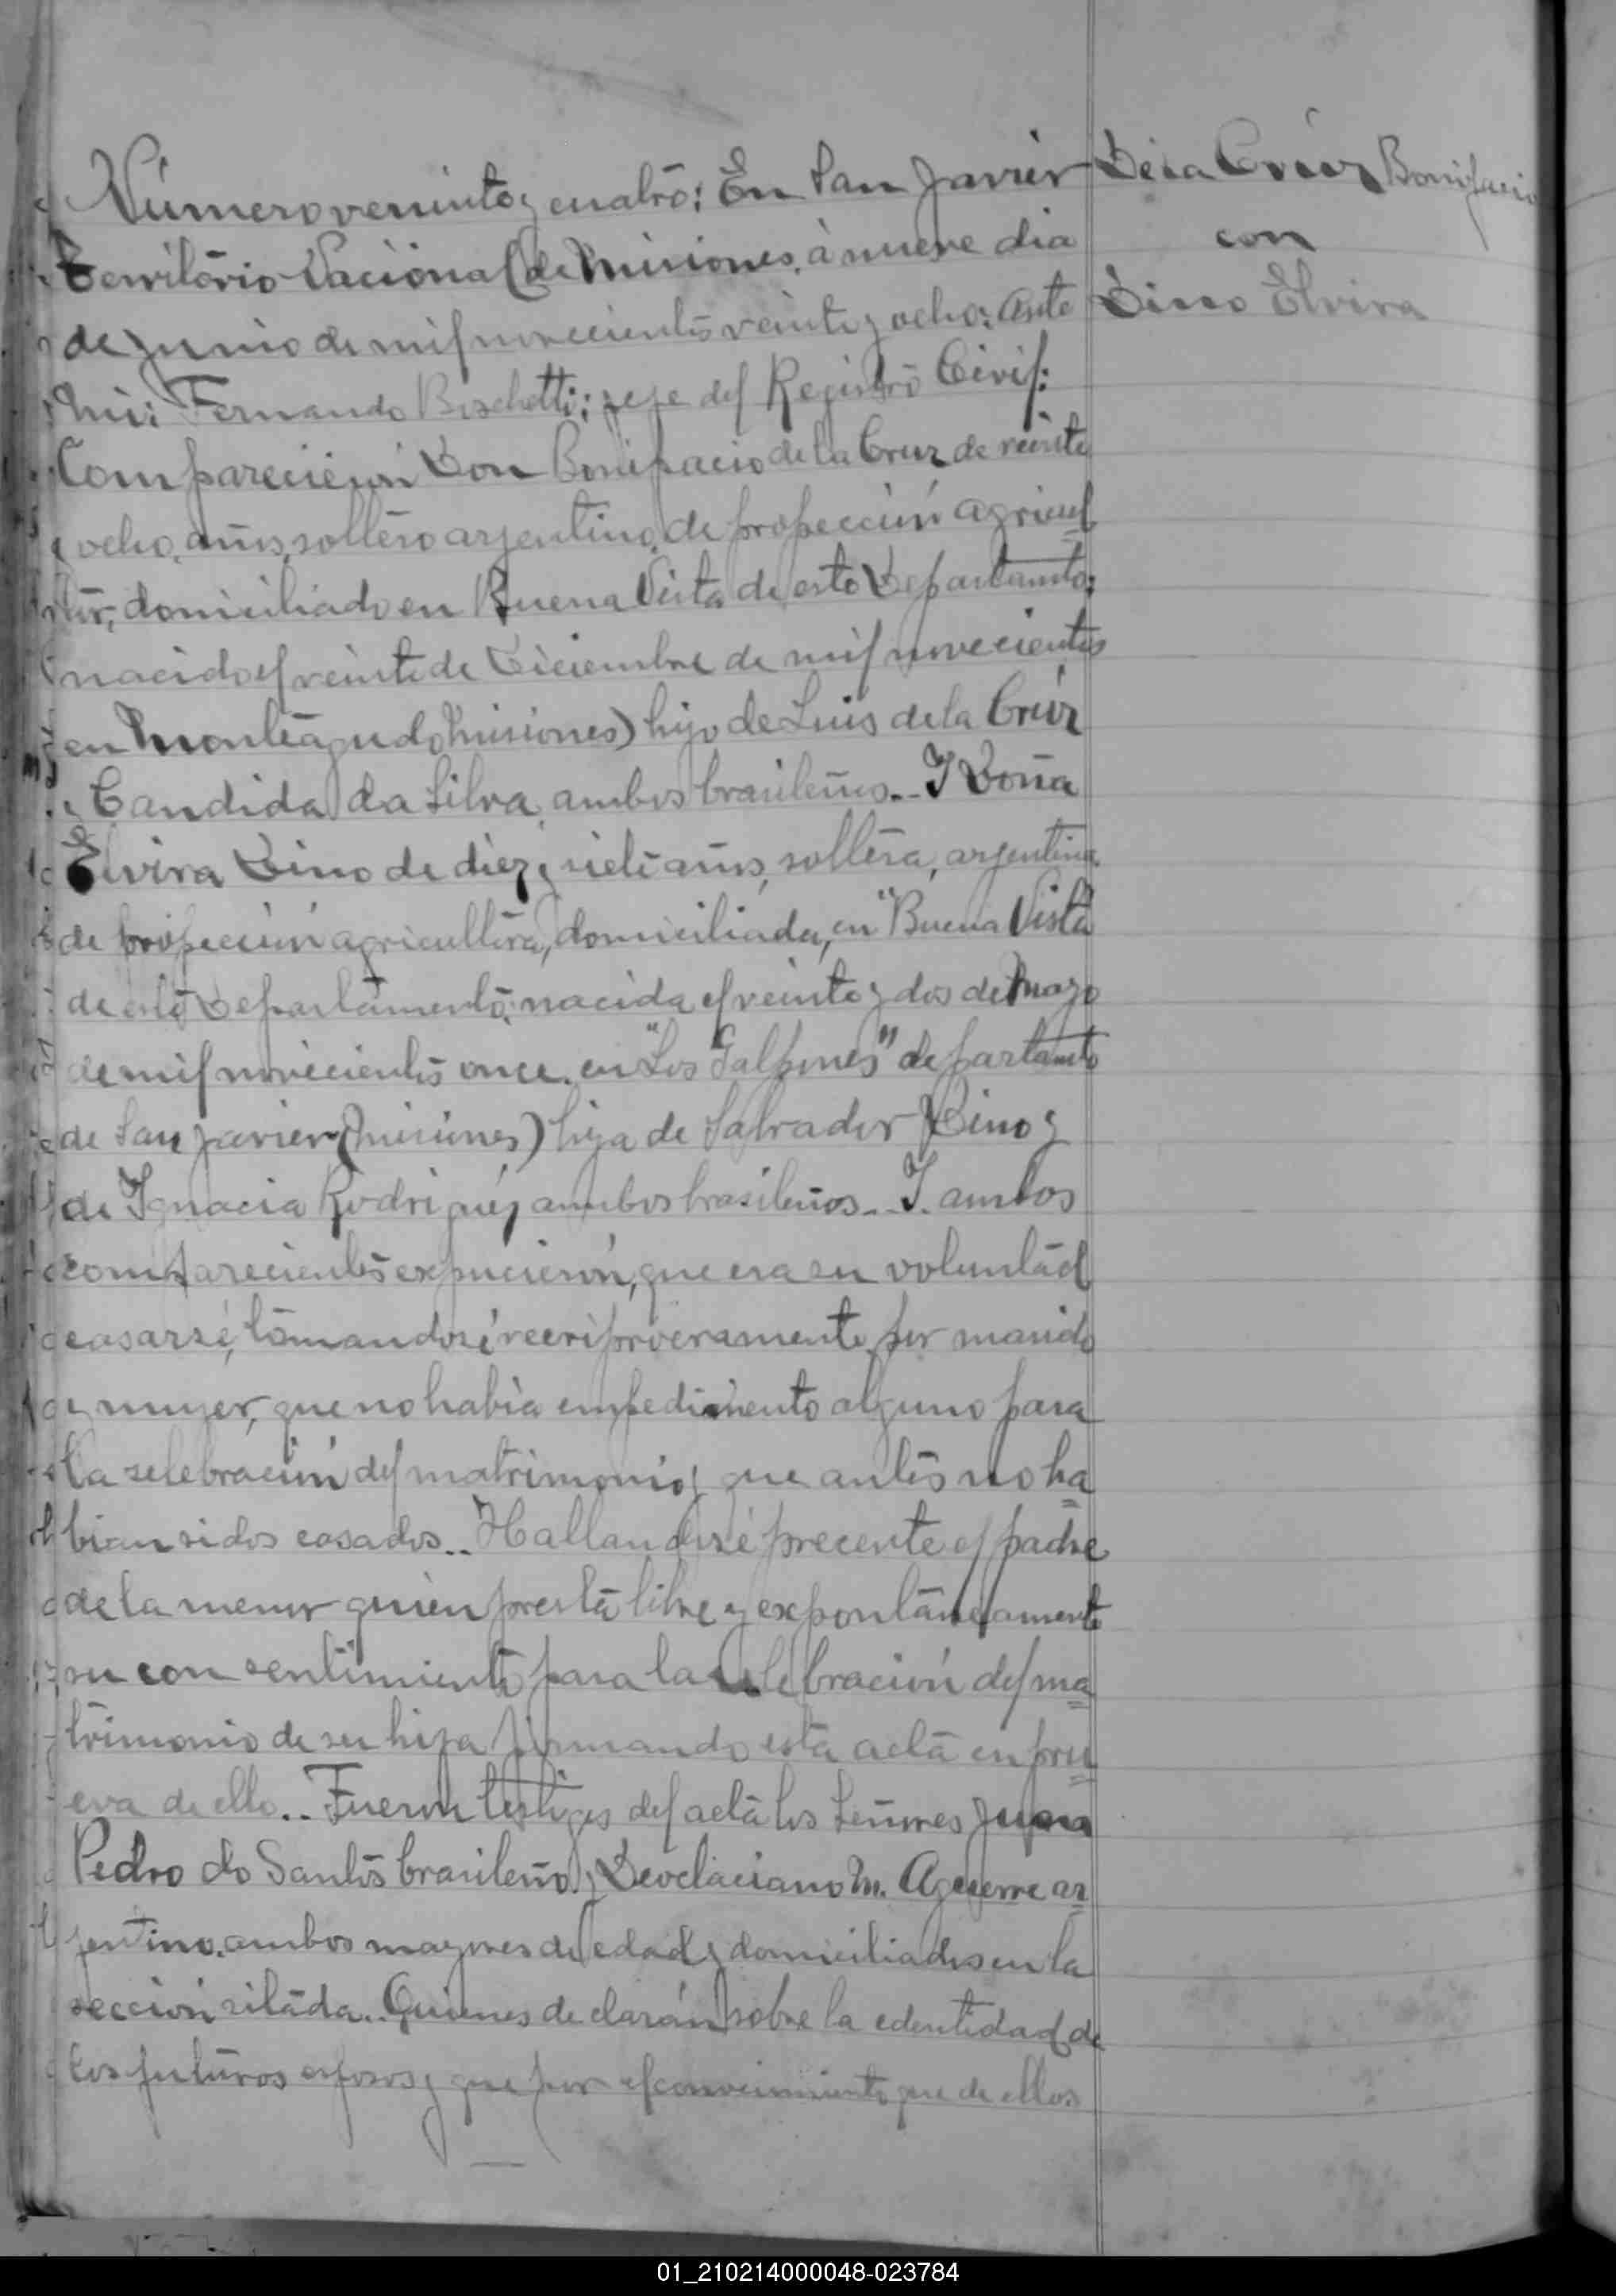 Número veninte y cuatro: En San Javier
Territorio Nacional de Misiones, à nueve dia
de Junio de mil novecientos veinte y ocho: Ante
Mi: Fernando Boschetti; jefe del Registro Civil:
Comparecieron Don Bonifacio de la Cruz de veinte
y ocho, años, soltero argentino, de profeccion agricul
tor, domiciliado en Buena Vista de este Departamto;
nacido el veinte de Diciembre de mil novecientos
en Monteagudo Misiones) hijo de Luis de la Crúz
y Candida da Silva, ambos brasileños.. I Doña
Elvira Dino de diez y siete años, soltera, argentina
de profeccion agricultora, domiciliada, en "Buena Vista
de este Departamento; nacida el veinte y dos de Mayo
de mil novecientos once, en "Los Galpones" departamto
de San Javier (Misiones) hija de Salvador Dino y
de Ignacia Rodriguéz ambos brasileños.. I. ambos
comparecientes expucieron, que era su voluntad
casarsé, tomandosé reciprocramente por marido
y mujer, que no habia empedimento alguno para
la selebración del matrimonio y que antes no ha
bian sidos casados.. Hallandosé precente el padre
de la menor quien presta libre y expontáneamente
su consentimiento para la celebración del ma
trimonio de su hija firmando esta acta en pru
eva de ello.. Fueron testigos del acta los Señores Juan
Pedro do Santos brasileño y M. Aguerre ar
jentino, ambos mayores de edad y domiciliados en la
sección sitada.. Quienes declarán sobre la edentidad de
los futuros esposos y que por el conocimiento que de ellos
De la Crúz Bonifacio
con
Dino Elvira
01_210214000048-023784